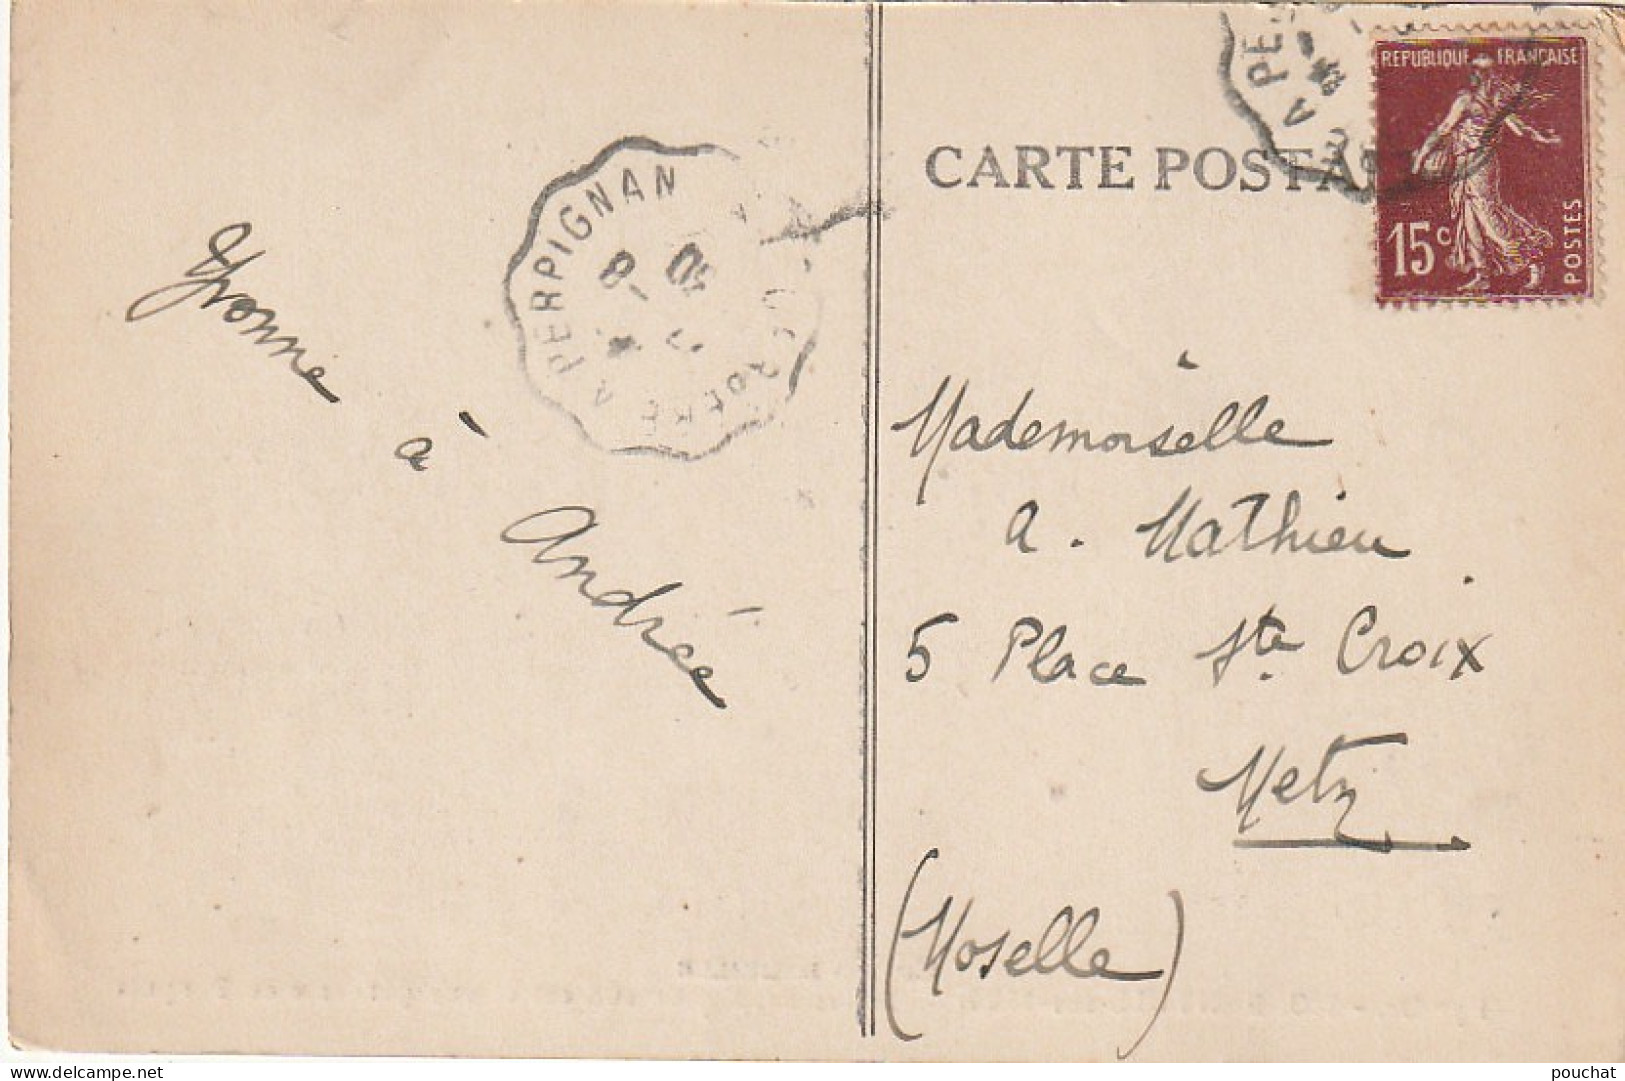 Yvonne
à
Andrée
A PERPIGNAN
CARTE POSTA
A PE
REPUBLIQUE FRANÇAISE
15c
POSTES
Mademoiselle
A. Mathieu
5 Place Ste. Croix
Metz
(Moselle)
pouchat
https://www.delcampe.net